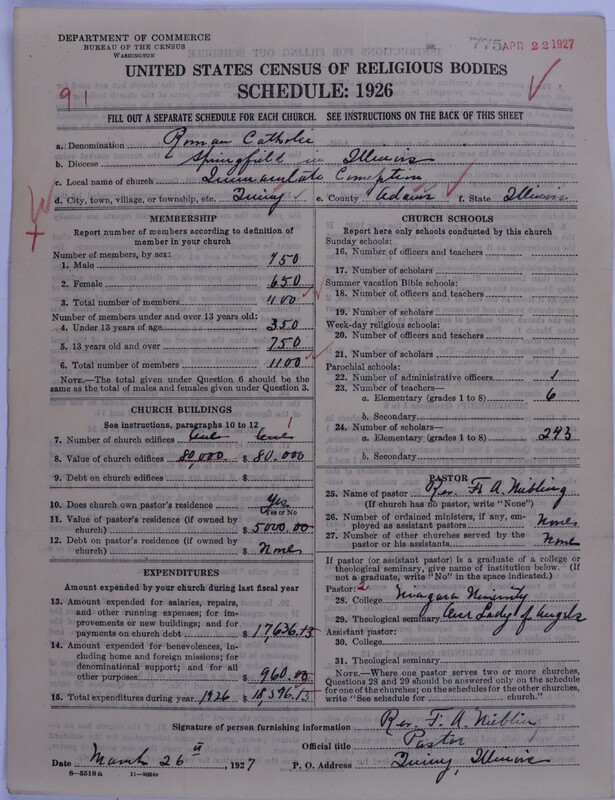 DEPARTMENT OF COMMERCE
BUREAU OF THE CENSUS
WASHINGTON
775 APR 22 1927
UNITED STATES CENSUS OF RELIGIOUS BODIES
SCHEDULE: 1926
91
FILL OUT A SEPARATE SCHEDULE FOR EACH CHURCH. SEE INSTRUCTIONS ON THE BACK OF THIS SHEET
a. Denomination Roman Catholic
b. Diocese Springfield in Illinois
c. Local name of church Immaculate Conception
d. City, town, village, or township, etc. Quincy e. County Adams f. State Illinois
MEMBERSHIP
Report number of members according to definition of
member in your church
Number of members, by sex:
1. Male 450
2. Female 650
3. Total number of members 1100
Number of members under and over 13 years old:
4. Under 13 years of age 350
5. 13 years old and over 750
6. Total number of members 1100
NOTE.—The total given under Question 6 should be
the same as the total of males and females given under Question 3.
CHURCH BUILDINGS
See instructions, paragraphs 10 to 12
1
7. Number of church edifices One One
8. Value of church edifices 80,000 $ 80.000
9. Debt on church edifices $
10. Does church own pastor's residence Yes
Yes or No
11. Value of pastor's residence (if owned by
church) $ 5000.00
12. Debt on pastor's residence (if owned by
church) $ None
EXPENDITURES
Amount expended by your church during last fiscal year
13. Amount expended for salaries, repairs,
and other running expenses; for im-
provements or new buildings; and for
payments on church debt $ 17636.13
14. Amount expended for benevolences, in-
cluding home and foreign missions; for
denominational support; and for all
other purposes $ 960.00
15. Total expenditures during year 1926 $ 18,596.13
CHURCH SCHOOLS
Report here only schools conducted by this church
Sunday schools:
16. Number of officers and teachers
17. Number of scholars
Summer vacation Bible schools:
18. Number of officers and teachers
19. Number of scholars
Week-day religious schools:
20. Number of officers and teachers
21. Number of scholars
Parochial schools:
22. Number of administrative officers 1
23. Number of teachers—
a. Elementary (grades 1 to 8) 6
b. Secondary
24. Number of scholars—
a. Elementary (grades 1 to 8) 243
b. Secondary
PASTOR
25. Name of pastor Rev. F. A. Niebling
(If church has no pastor, write "None")
26. Number of ordained ministers, if any, em-
ployed as assistant pastors None
27. Number of other churches served by the
pastor or his assistants None
If pastor (or assistant pastor) is a graduate of a college or
theological seminary, give name of institution below. (If
not a graduate, write "No" in the space indicated.)
Pastor: 2
28. College Niagara University
29. Theological seminary Our Lady of Angels
Assistant pastor:
30. College
31. Theological seminary
NOTE.—Where one pastor serves two or more churches,
Questions 28 and 29 should be answered only on the schedule
for one of the churches; on the schedules for the other churches,
write "See schedule for church."
Signature of person furnishing information Rev. F. A. Niebling
Official title Pastor
Date March 26 1927 P. O. Address Quincy, Illinois
8—5518a 11—9054a